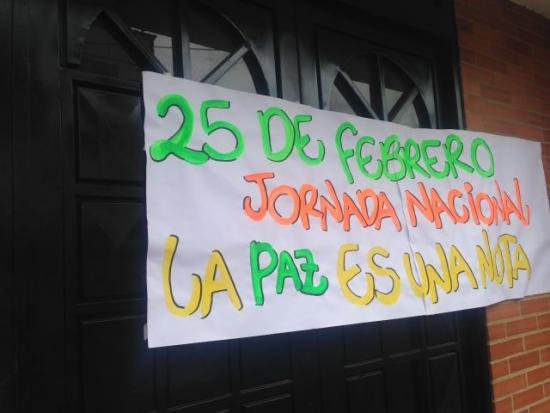 25 DE FEBRERO
JORNADA NACIONAL
LA PAZ ES UNA NOTA